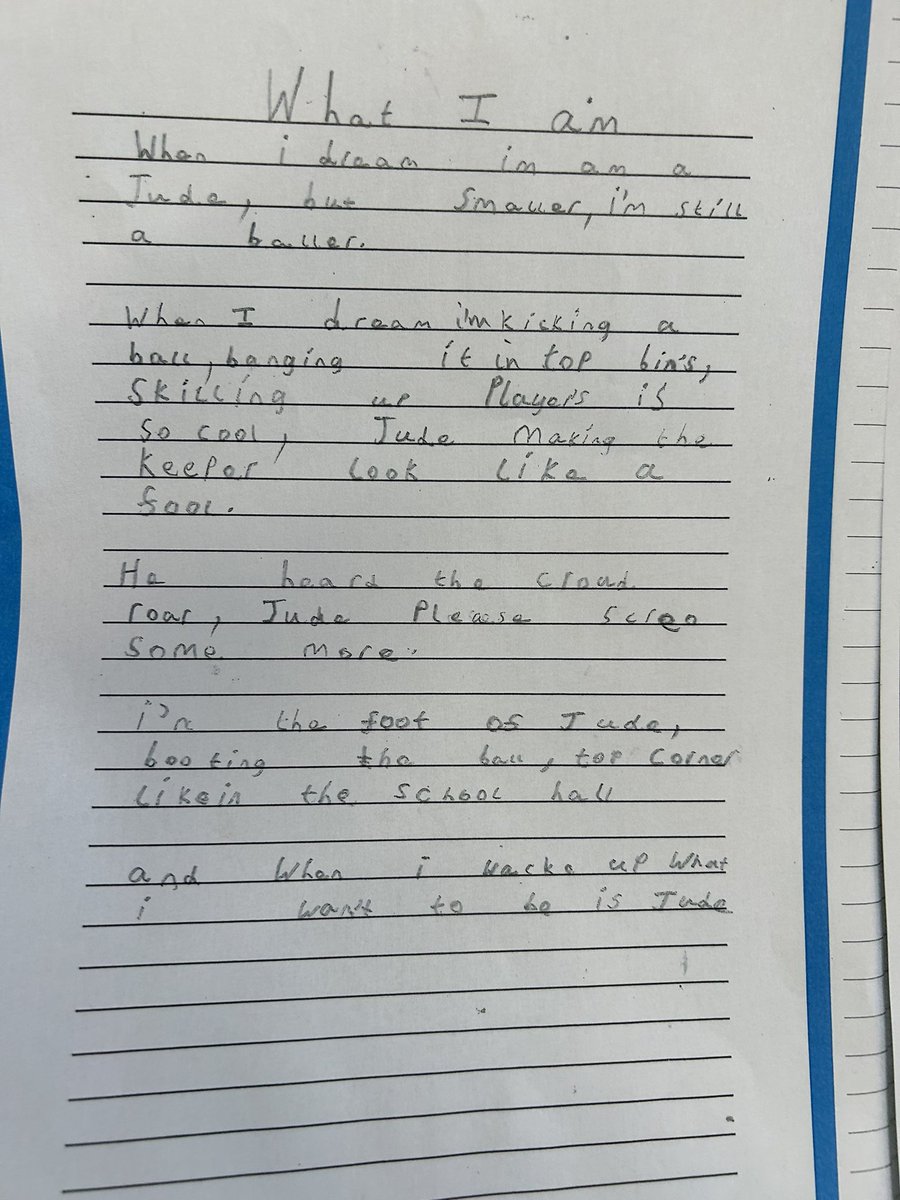 What I a'm
When i dream im am a
Jude, but smaller, i'm still
a baller.
When I dream i'm kicking a
ball, banging it in top bin's,
skilling up Player's is
so cool, Jude making the
keeper look like a
fool.
He heard the croud
roar, Jude Please screo
some more.
i'm the foot of Jude,
booting the ball, top corner
like in the school hall
and when i wacke up what
i wan't to be is Jude